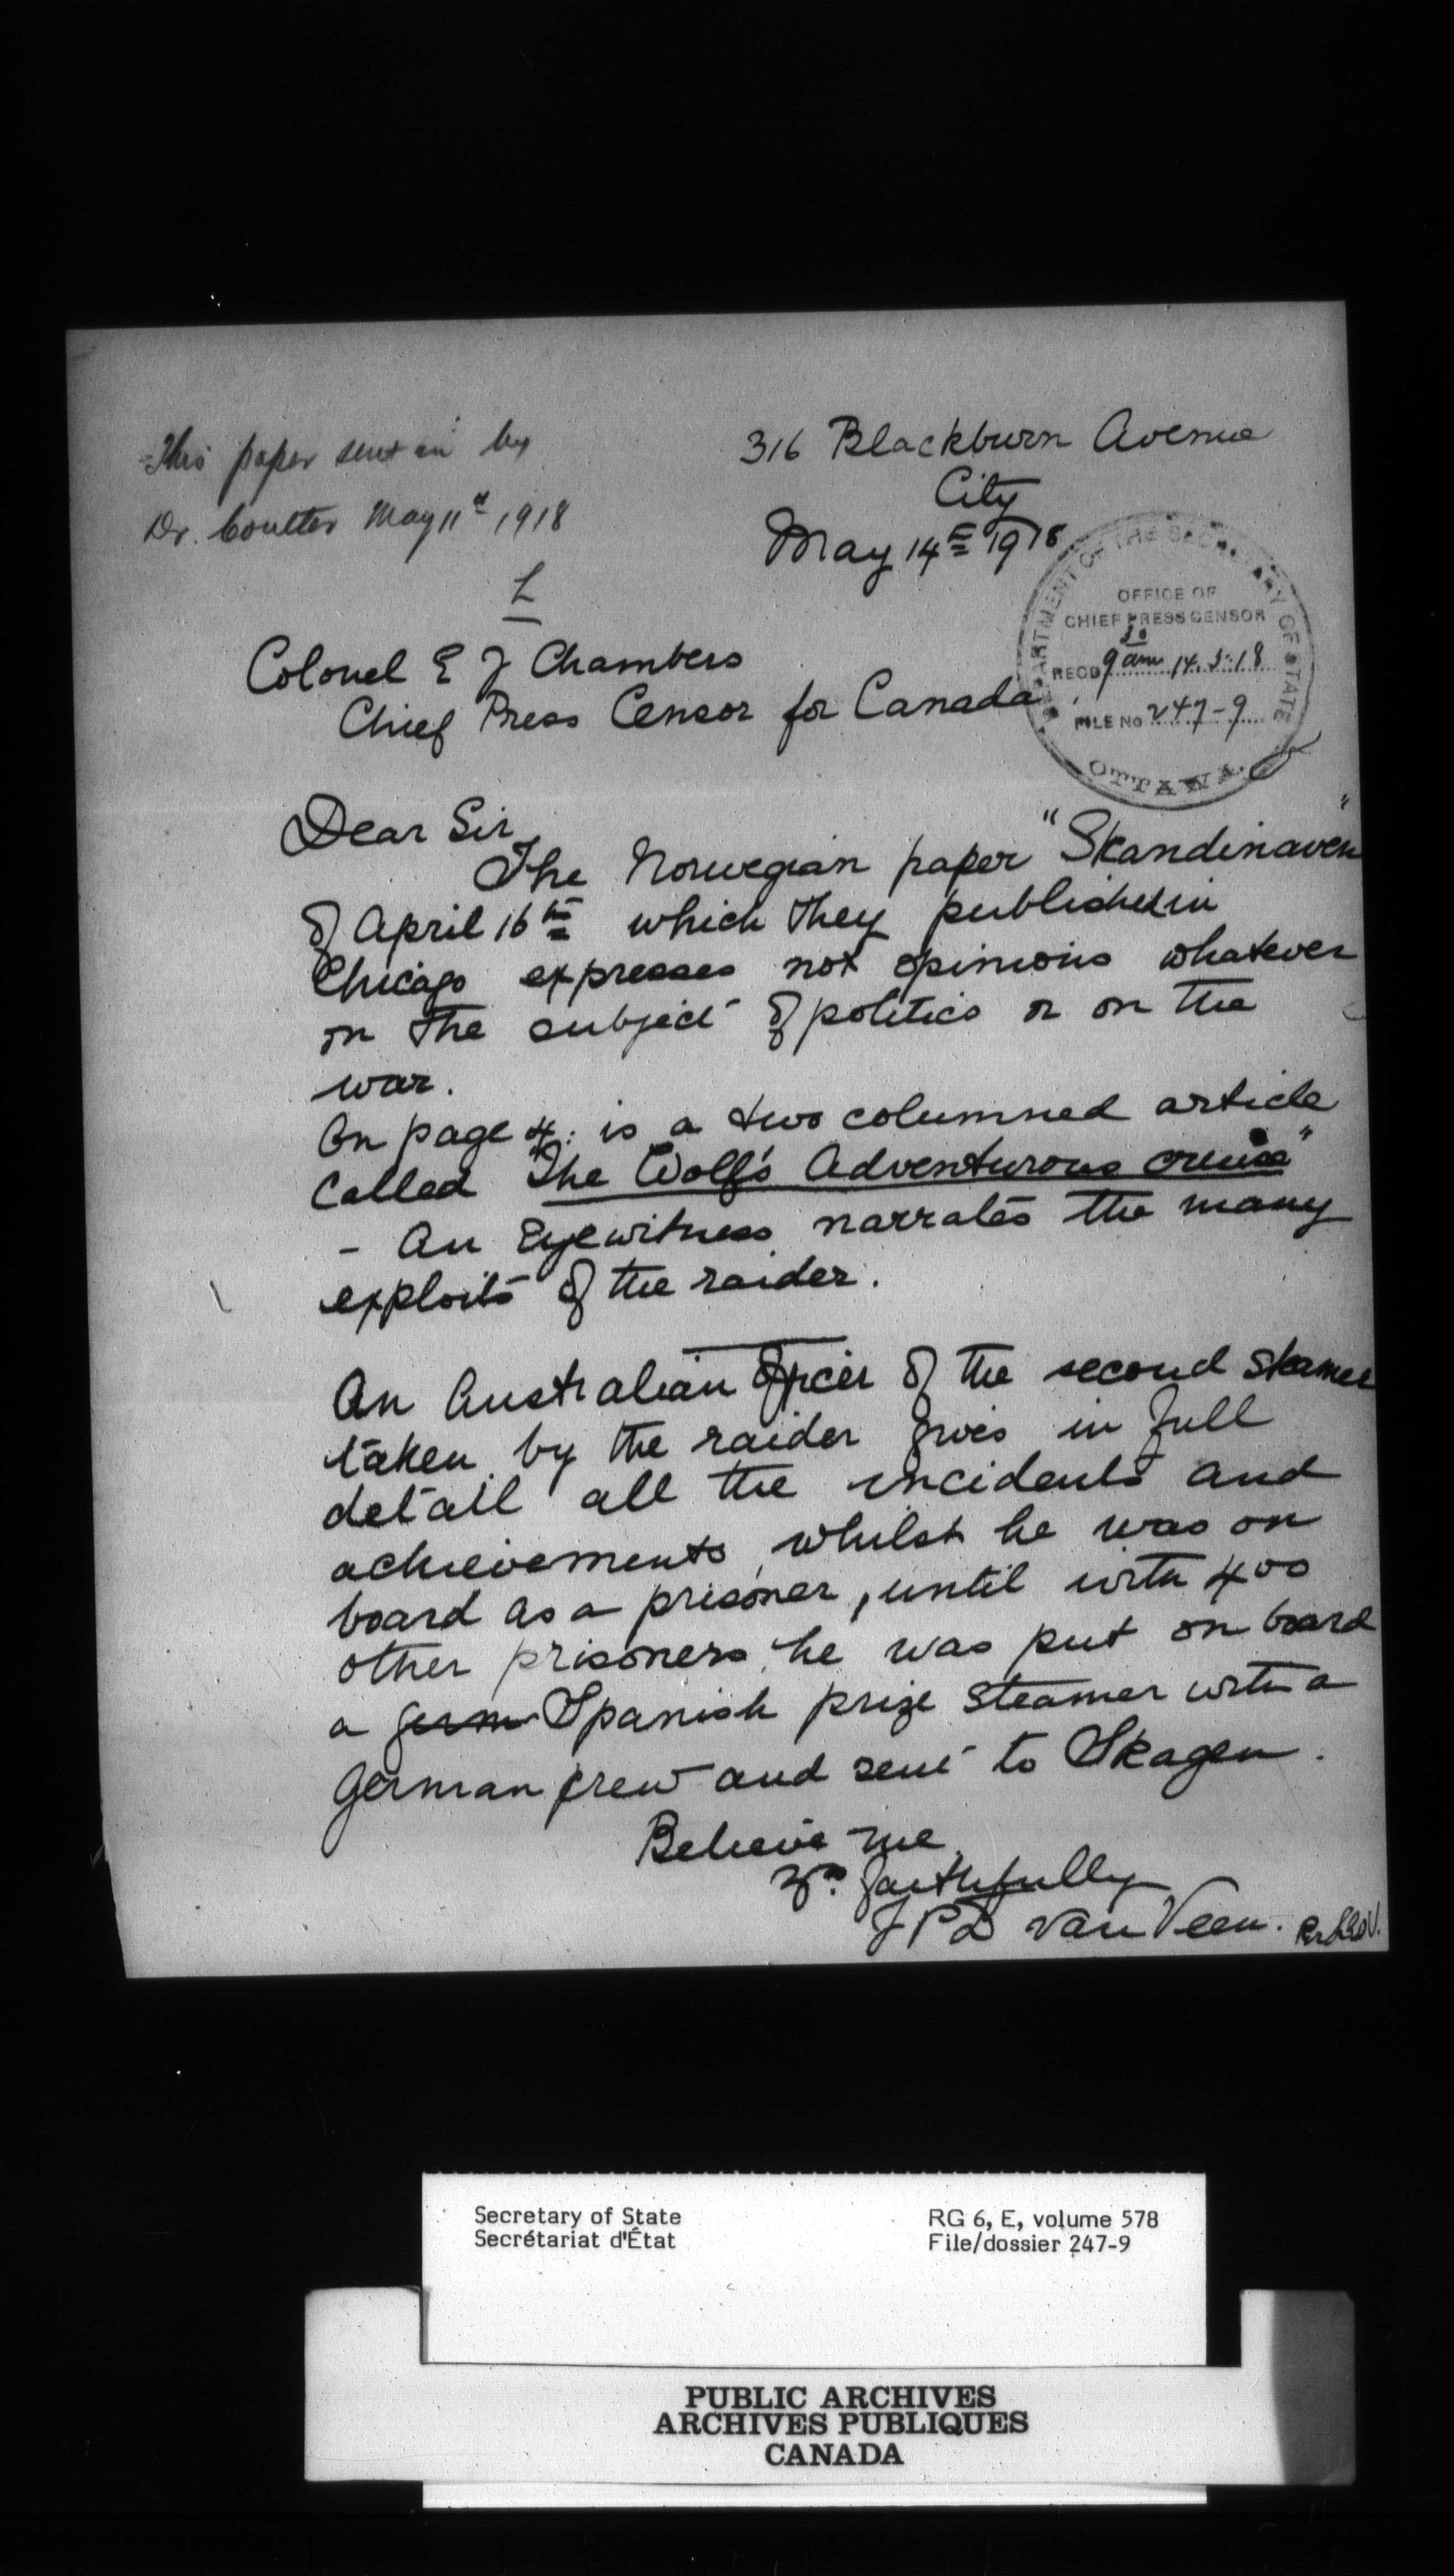 This paper sent in by
Dr. Coulter May 11th 1918
L
316 Blackburn Avenue
City
May 14th 1918
DEPARTMENT OF THE SECRETARY OF STATE
OFFICE OF
CHIEF PRESS CENSOR
RECD 9 30 am 14.5.18
FILE No 247-9
OTTAWA.
Colonel E J Chambers
Chief Press Censor for Canada
Dear Sir
The Norwegian paper "Skandinaven"
of April 16th which they publish in
Chicago expresses not opinions whatever
on the subject of politics or on the
war.
On page 4: is a two columned article
called "The Wolf's Adventurous cruise"
- An Eyewitness narrates the many
exploits of the raider.
An Australian Officer of the second steamer
taken by the raider gives in full
detail all the incidents and
achievements, whilst he was on
board as a prisoner, until with 400
other prisoners he was put on board
a germ Spanish prize steamer with a
German crew and sent to Skagen.
Believe me
Yrs. faithfully
J P D van Veen.
Secretary of State
Secrétariat d'État
RG 6, E, volume 578
File/dossier 247-9
PUBLIC ARCHIVES
ARCHIVES PUBLIQUES
CANADA